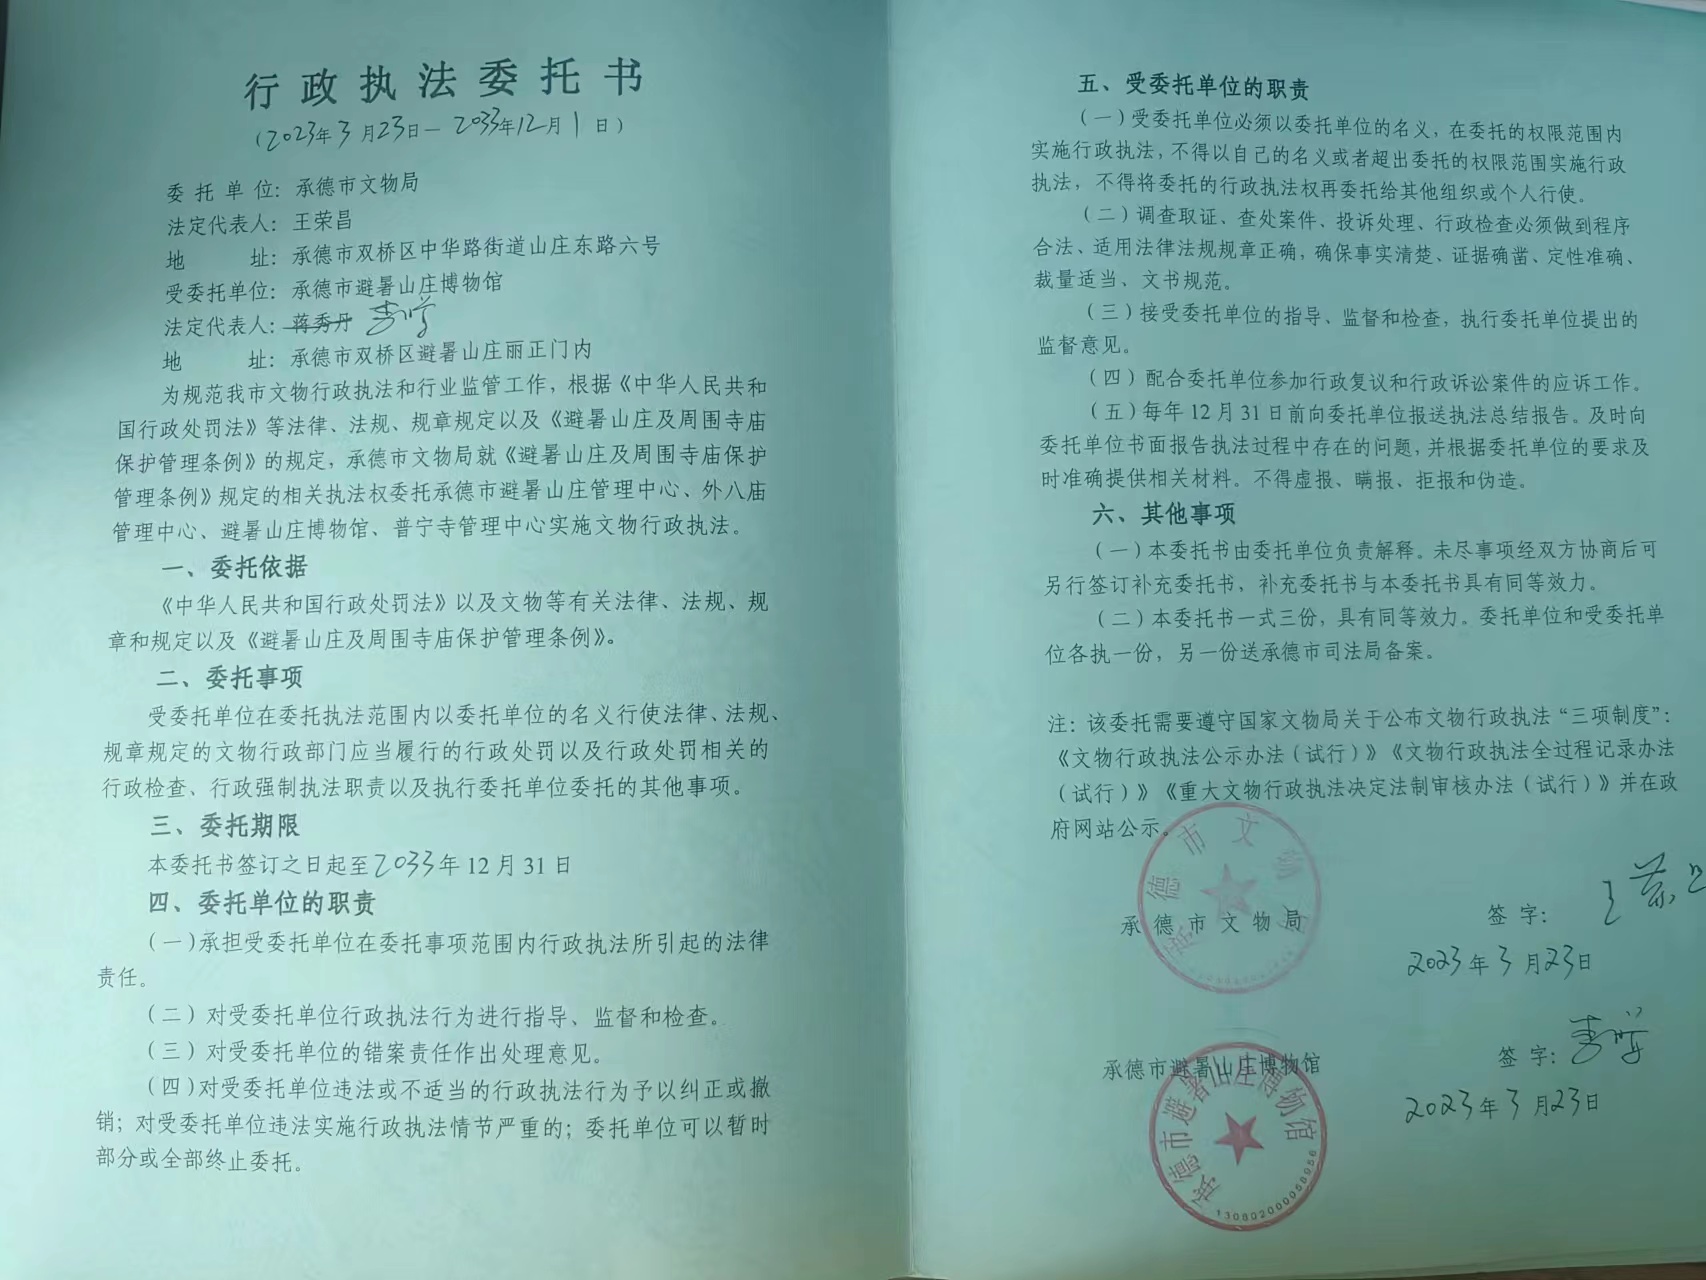 行政执法委托书
（2023年3月23日－2033年12月1日）
委托单位：承德市文物局
法定代表人：王荣昌
地址：承德市双桥区中华路街道山庄东路六号
受委托单位：承德市避暑山庄博物馆
法定代表人：蒋秀丹
地址：承德市双桥区避暑山庄丽正门内
为规范我市文物行政执法和行业监管工作，根据《中华人民共和
国行政处罚法》等法律、法规、规章规定以及《避暑山庄及周围寺庙
保护管理条例》的规定，承德市文物局就《避暑山庄及周围寺庙保护
管理条例》规定的相关执法权委托承德市避暑山庄管理中心、外八庙
管理中心、避暑山庄博物馆、普宁寺管理中心实施文物行政执法。
一、委托依据
《中华人民共和国行政处罚法》以及文物等有关法律、法规、规
章和规定以及《避暑山庄及周围寺庙保护管理条例》。
二、委托事项
受委托单位在委托执法范围内以委托单位的名义行使法律、法规、
规章规定的文物行政部门应当履行的行政处罚以及行政处罚相关的
行政检查、行政强制执法职责以及执行委托单位委托的其他事项。
三、委托期限
本委托书签订之日起至2033年12月31日
四、委托单位的职责
（一）承担受委托单位在委托事项范围内行政执法所引起的法律
责任。
（二）对受委托单位行政执法行为进行指导、监督和检查。
（三）对受委托单位的错案责任作出处理意见。
（四）对受委托单位违法或不适当的行政执法行为予以纠正或撤
销；对受委托单位违法实施行政执法情节严重的；委托单位可以暂时
部分或全部终止委托。
五、受委托单位的职责
（一）受委托单位必须以委托单位的名义，在委托的权限范围内
实施行政执法，不得以自己的名义或者超出委托的权限范围实施行政
执法，不得将委托的行政执法权再委托给其他组织或个人行使。
（二）调查取证、查处案件、投诉处理、行政检查必须做到程序
合法、适用法律法规规章正确，确保事实清楚、证据确凿、定性准确、
裁量适当、文书规范。
（三）接受委托单位的指导、监督和检查，执行委托单位提出的
监督意见。
（四）配合委托单位参加行政复议和行政诉讼案件的应诉工作。
（五）每年12月31日前向委托单位报送执法总结报告。及时向
委托单位书面报告执法过程中存在的问题，并根据委托单位的要求及
时准确提供相关材料。不得虚报、瞒报、拒报和伪造。
六、其他事项
（一）本委托书由委托单位负责解释。未尽事项经双方协商后可
另行签订补充委托书，补充委托书与本委托书具有同等效力。
（二）本委托书一式三份，具有同等效力。委托单位和受委托单
位各执一份，另一份送承德市司法局备案。
注：该委托需要遵守国家文物局关于公布文物行政执法“三项制度”：
《文物行政执法公示办法（试行）》《文物行政执法全过程记录办法
（试行）》《重大文物行政执法决定法制审核办法（试行）》并在政
府网站公示。
承德市文物局 签字：
2023年3月23日
承德市避暑山庄博物馆 签字：
2023年3月23日
承德市避暑山庄博物馆